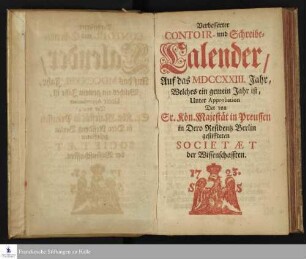 Verbesserter
CONTOIR- und Schreibe-
Calender,
Auf das MDCCXXIII. Jahr,
Welches ein gemein Jahr ist,
Unter Approbation
Der von
Sr. Kön. Majestät in Preussen
in Dero Residentz Berlin
gestiffteten
SOCIETÆT
der Wissenschafften.
1723.
Franckesche Stiftungen zu Halle